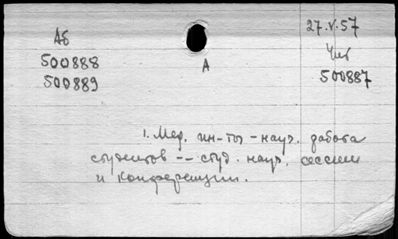 Аб
27.V.57
500888
А
Чит
500889
500887
1. Мед. ин-ты - науч. работа
студентов -- студ. науч. сессии
и конференции.